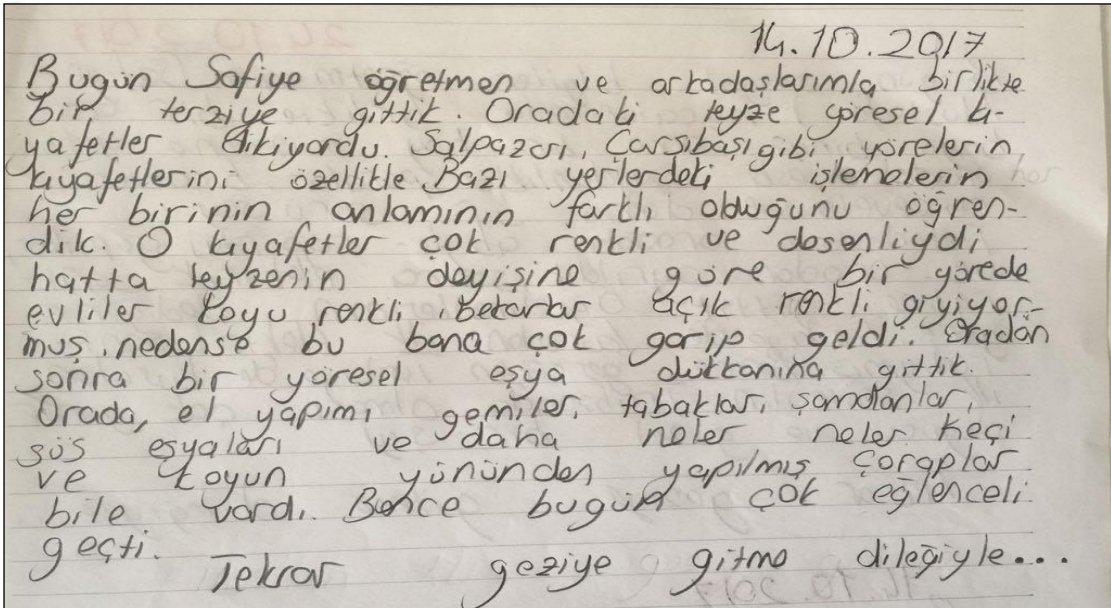 14.10.2017
Bugün Safiye öğretmen ve arkadaşlarımla birlikte
bir terziye gittik. Oradaki teyze yöresel kı-
yafetler dikiyordu. Şalpazarı, Çarşıbaşı gibi yörelerin
kıyafetlerini özellikle. Bazı yerlerdeki işlemelerin
her birinin anlamının farklı olduğunu öğren-
dik. O kıyafetler çok renkli ve desenliydi
hatta teyzenin deyişine göre bir yörede
evliler koyu renkli, bekarlar açık renkli giyiyor-
muş, nedense bu bana çok garip geldi. Oradan
sonra bir yöresel eşya dükkanına gittik.
Orada, el yapımı gemiler, tabaklar, şamdanlar,
süs eşyaları ve daha neler neler. Keçi
ve koyun yününden yapılmış çoraplar
bile vardı. Bence bugün çok eğlenceli
geçti.
Tekrar geziye gitme dileğiyle...